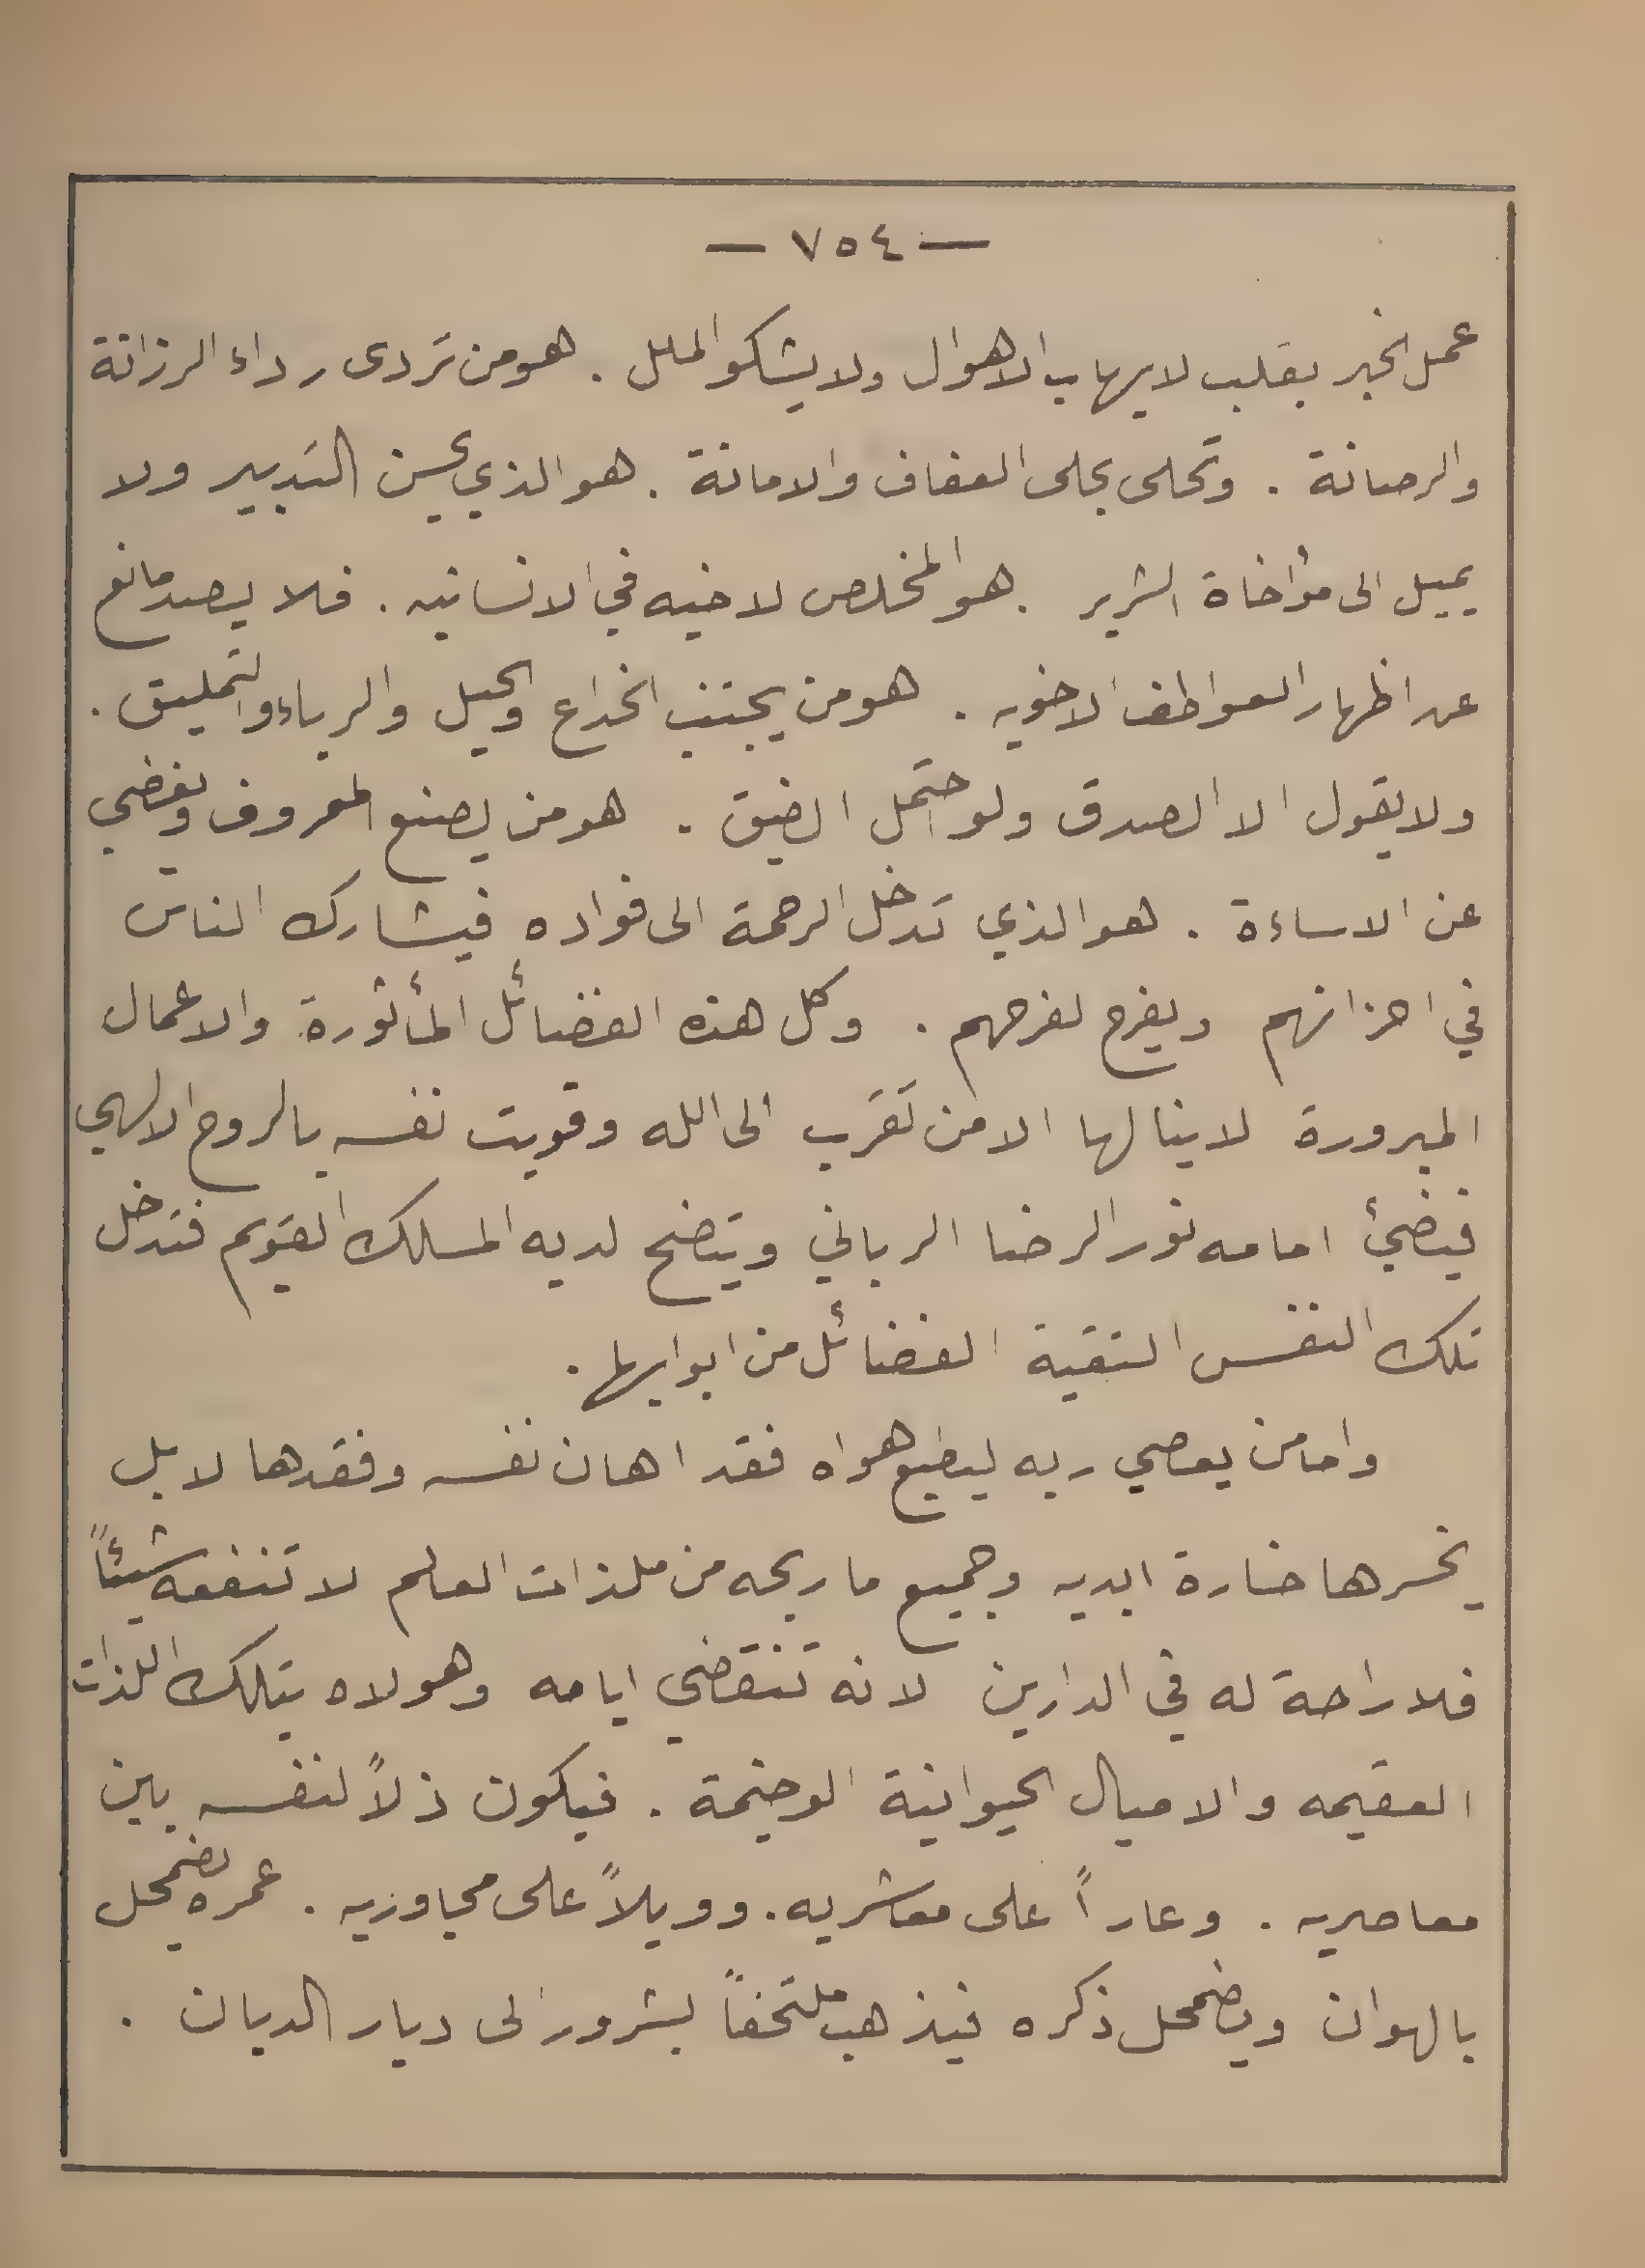 — ٧٥٤ —
عمل الخير بقلب لا يهاب الاهوال ولا يشكو الملل . هو من تردى رداء الرزانة
والرصانة . وتحلى بحلى العفاف والامانة . هو الذي يحسن التدبير ولا
يميل الى مؤاخاة الشرير . هو المخلص لاخيه في الانسانيه . فلا يصده مانع
عن اظهار العواطف الاخويه . هو من يجتنب الخداع والحيل والرياء والتمليق .
ولا يقول الا الصدق ولو احتمل الضيق . هو من يصنع المعروف ويغضي
عن الاساءة . هو الذي تدخل الرحمة الى فواده فيشارك الناس
في احزانهم ويفرح لفرحهم . وكل هذه الفضائل المأثورة والاعمال
المبرورة لا ينالها الا من تقرب الى الله وقويت نفسه بالروح الالهي
فيضئ امامه نور الرضا الرباني ويتضح لديه المسلك القويم فتدخل
تلك النفس النقية الفضائل من ابوابها .
واما من يعصي ربه ليطيع هواه فقد اهان نفسه وفقدها لا بل
يخسرها خسارة ابديه وجميع ما ربحه من ملذات العالم لا تنفعه شيئاً
فلا راحة له في الدارين لانه تنقضي ايامه وهو لاه بتلك اللذات
العقيمه والاميال الحيوانية الوخيمة . فيكون ذلاً لنفسه بين
معاصريه . وعاراً على معاشريه . وويلاً على مجاوزيه . عمره يضمحل
بالهوان ويضمحل ذكره فيذهب ملتحفاً بشرور الى ديار الديان .